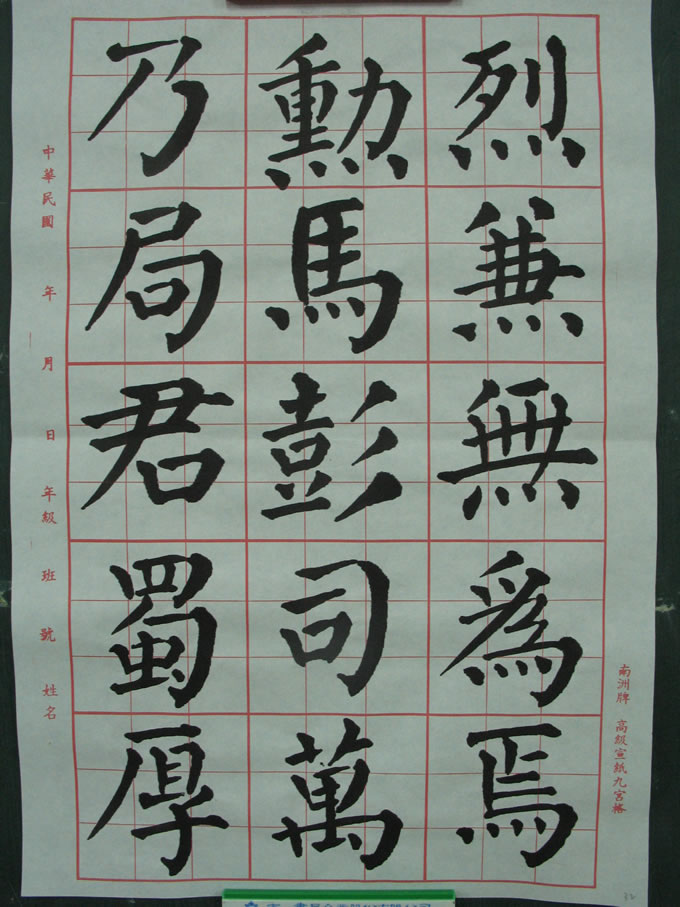 烈兼無爲焉
勳馬彭司萬
乃局君蜀厚
南洲牌 高級宣紙九宮格
中華民國 年 月 日 年級 班 號 姓名
32